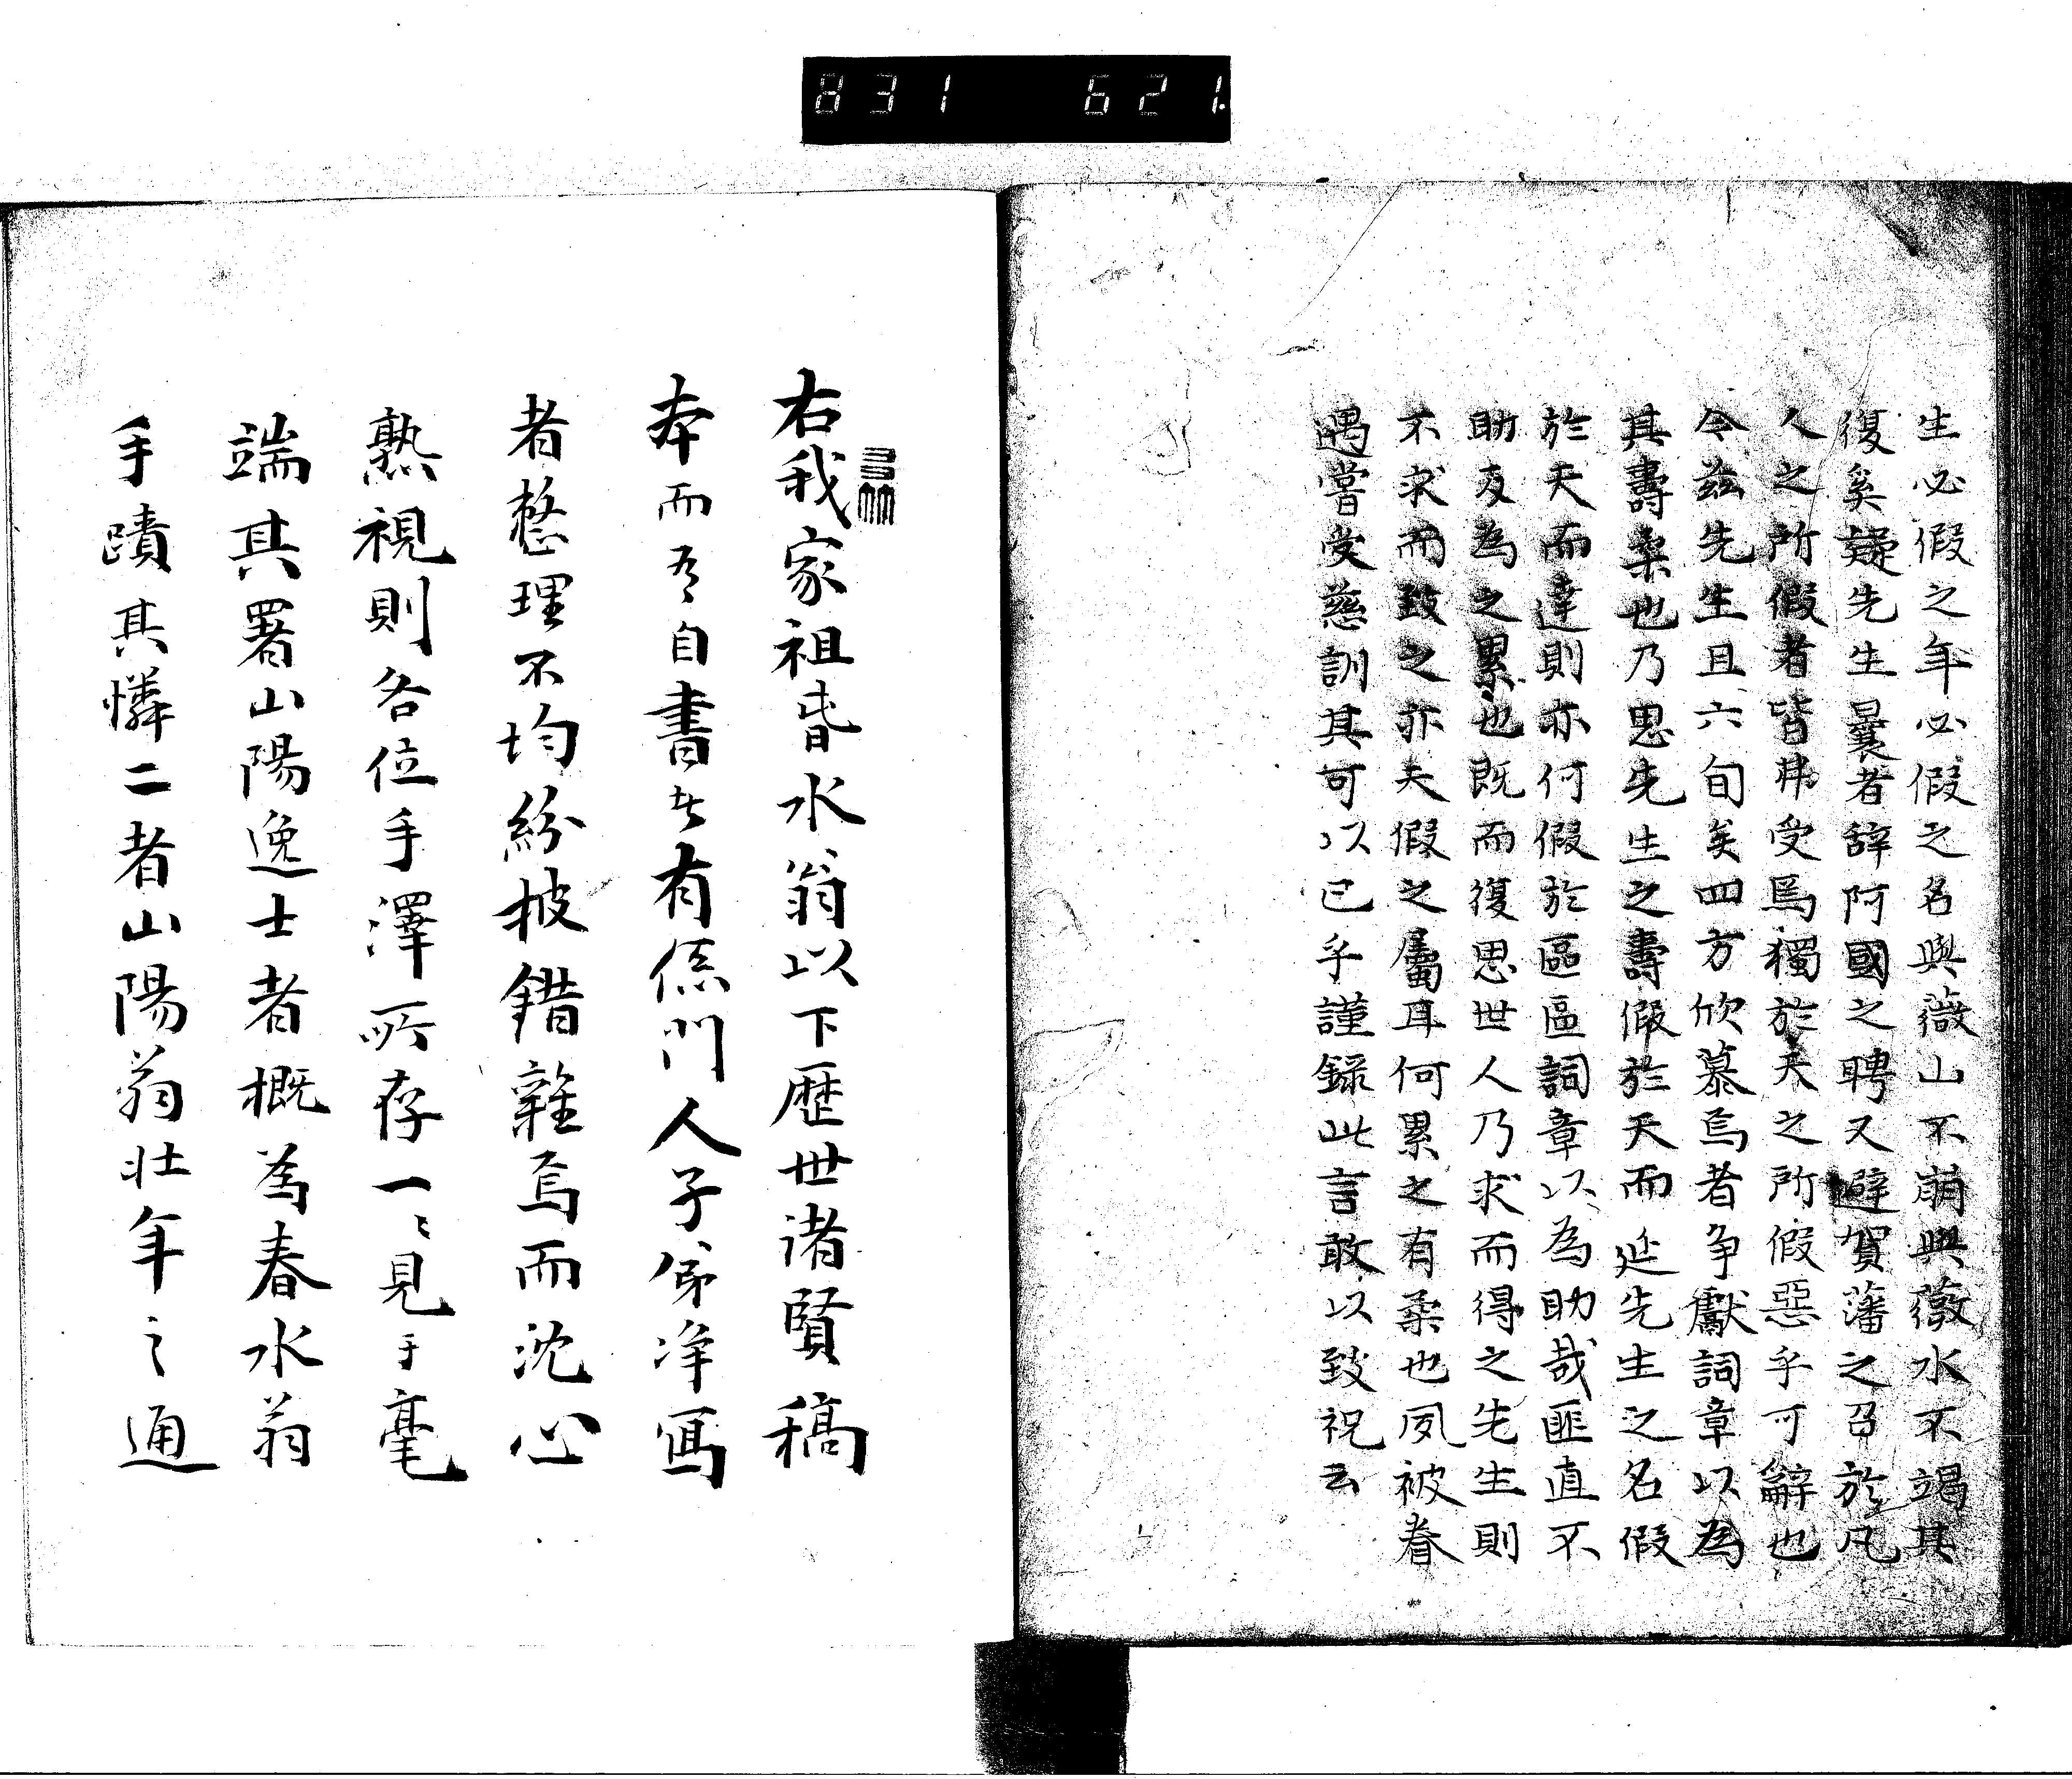 831 621
生必假之年必假之名與薇山不崩與薇水不竭其
復奚疑先生曩者辞阿國之聘又避賀藩之召於凡
人之所假者皆弗受焉獨於天之所假惡乎可辭也
今兹先生且六旬矣四方欣慕焉者争獻詞章以為
其壽柔也乃思先生之壽假於天而延先生之名假
於天而達則亦何假於區區詞章以為助哉匪直不
助友為之累也既而復思世人乃求而得之先生則
不求而致之亦天假之屬耳何累之有柔也夙被眷
遇嘗受慈訓其可以已乎謹録此言敢以致祝云
右我家祖春水翁以下歴世诸賢稿
本而有自書者有係門人子弟净寫
者整理不均紛披錯雜焉而沈心
熟視則各位手澤所存一〻見于毫
端其署山陽逸士者概為春水翁
手蹟其憐二者山陽翁壮年之通